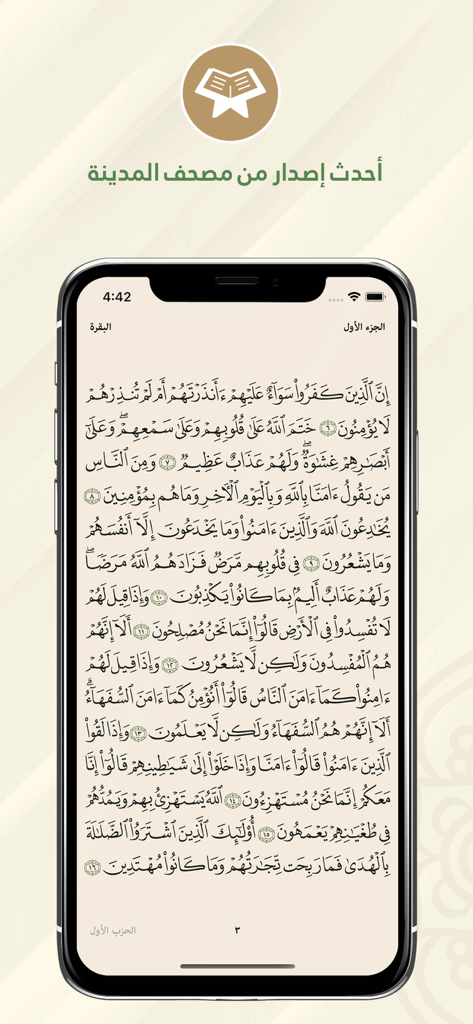 أحدث إصدار من مصحف المدينة
4:42
الجزء الأول
البقرة
إِنَّ ٱلَّذِينَ كَفَرُوا۟ سَوَآءٌ عَلَيْهِمْ ءَأَنذَرْتَهُمْ أَمْ لَمْ تُنذِرْهُمْ
لَا يُؤْمِنُونَ ٦ خَتَمَ ٱللَّهُ عَلَىٰ قُلُوبِهِمْ وَعَلَىٰ سَمْعِهِمْ ۖ وَعَلَىٰٓ
أَبْصَٰرِهِمْ غِشَٰوَةٌ ۖ وَلَهُمْ عَذَابٌ عَظِيمٌ ٧ وَمِنَ ٱلنَّاسِ
مَن يَقُولُ ءَامَنَّا بِٱللَّهِ وَبِٱلْيَوْمِ ٱلْءَاخِرِ وَمَا هُم بِمُؤْمِنِينَ ٨
يُخَٰدِعُونَ ٱللَّهَ وَٱلَّذِينَ ءَامَنُوا۟ وَمَا يَخْدَعُونَ إِلَّآ أَنفُسَهُمْ
وَمَا يَشْعُرُونَ ٩ فِى قُلُوبِهِم مَّرَضٌ فَزَادَهُمُ ٱللَّهُ مَرَضًا ۖ
وَلَهُمْ عَذَابٌ أَلِيمٌۢ بِمَا كَانُوا۟ يَكْذِبُونَ ١٠ وَإِذَا قِيلَ لَهُمْ
لَا تُفْسِدُوا۟ فِى ٱلْأَرْضِ قَالُوٓا۟ إِنَّمَا نَحْنُ مُصْلِحُونَ ١١ أَلَآ إِنَّهُمْ
هُمُ ٱلْمُفْسِدُونَ وَلَٰكِن لَّا يَشْعُرُونَ ١٢ وَإِذَا قِيلَ لَهُمْ
ءَامِنُوا۟ كَمَآ ءَامَنَ ٱلنَّاسُ قَالُوٓا۟ أَنُؤْمِنُ كَمَآ ءَامَنَ ٱلسُّفَهَآءُ ۗ
أَلَآ إِنَّهُمْ هُمُ ٱلسُّفَهَآءُ وَلَٰكِن لَّا يَعْلَمُونَ ١٣ وَإِذَا لَقُوا۟
ٱلَّذِينَ ءَامَنُوا۟ قَالُوٓا۟ ءَامَنَّا وَإِذَا خَلَوْا۟ إِلَىٰ شَيَٰطِينِهِمْ قَالُوٓا۟ إِنَّا
مَعَكُمْ إِنَّمَا نَحْنُ مُسْتَهْزِءُونَ ١٤ ٱللَّهُ يَسْتَهْزِئُ بِهِمْ وَيَمُدُّهُمْ
فِى طُغْيَٰنِهِمْ يَعْمَهُونَ ١٥ أُو۟لَٰٓئِكَ ٱلَّذِينَ ٱشْتَرَوُا۟ ٱلضَّلَٰلَةَ
بِٱلْهُدَىٰ فَمَا رَبِحَت تِّجَٰرَتُهُمْ وَمَا كَانُوا۟ مُهْتَدِينَ ١٦
٣
الحزب الأول